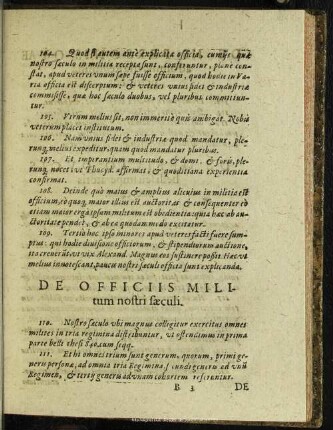 104. Quod si autem antè explicita officia, cum ijs quæ
nostro sæculo in militia recepta sunt, conferuntur, planè con-
stat, apud veteres vnum sæpe fuisse officium, quod hodie in va-
ria officia est discerptum: & veteres vnius fidei & industriæ
commisisse, quæ hoc sæculo duobus, vel pluribus committun-
tur.
105. Vtrum melius sit, non immeritò quis ambigat. Nobis
veterum placet institutum.
106. Nam vnius fidei & industriæ quod mandatur, ple-
runq; melius expeditur: quàm quod mandatur pluribus.
107. Et imperantium multitudo, & domi, & foris, ple-
runq; nocet vt Thucyd. affirmat, & quotidiana experientia
confirmat.
108. Deinde quò maius & amplius alicuius in militia est
officium, eò quoq; maior illius est auctoritas & consequenter
etiam maior erga ipsum militum est obedientia: quia hæc ab au-
ctoritate pendet, & ab ea quodammodo excitatur.
109. Tertiò hoc ipso minores apud veteres factí fuere sum-
ptus: qui hodie divisione officiorum, & stipendiorum auctione,
ita creverūt vt vix Alexand. Magnus eos sustinere possit. Hæc vt
melius innotescant, paucis nostri sæculi officia sunt explicanda.
DE OFFICIIS MILI-
tum nostri sæculi.
110. Nostro sæculo vbi magnus colligitur exercitus omnes
milites in tria regimina distribuntur, vt ostendimus in prima
parte belli thesi 840. cum seqq.
111. Et hi omnes trium sunt generum, quorum, primi ge-
neris personæ, ad omnia tria Regimina, secundi generis ad vnū
Regimen, & tertij generis ad vnam cohortem referuntur.
B 3 DE